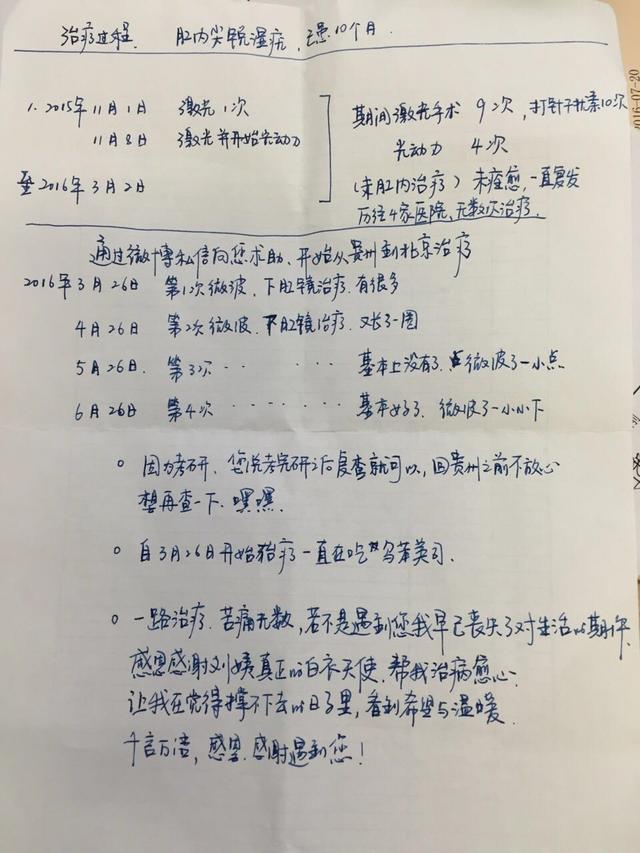 治疗过程. 肛内尖锐湿疣, 已患10个月.
1. 2015年11月1日 激光1次
11月8日 激光并开始光动力
至2016年3月2日
期间激光手术 9次, 打针干扰素10次
光动力 4次
(未肛内治疗) 未痊愈, 一直复发
历经4家医院, 无数次治疗.
通过微博私信向您求助. 开始从贵州到北京治疗
2016年3月26日 第1次微波, 下肛镜治疗. 有很多
4月26日 第2次微波. 下肛镜治疗. 又长了一圈
5月26日. 第3次 · · · · · · 基本上没有了. 点微波了一小点
6月26日 第4次 · · · · · · 基本好了. 微波了一小小下
。因为考研. 您说考完研之后复查就可以, 回贵州之前不放心
想再查一下. 嘿嘿.
。自3月26日开始治疗一直在吃乌苯美司.
。一路治疗. 苦痛无数, 若不是遇到您我早已丧失了对生活的期许.
感恩感谢刘姨真正的白衣天使. 帮我治病愈心.
让我在觉得撑不下去的日子里, 看到希望与温暖.
千言万语, 感恩. 感谢遇到您!
016-07-20